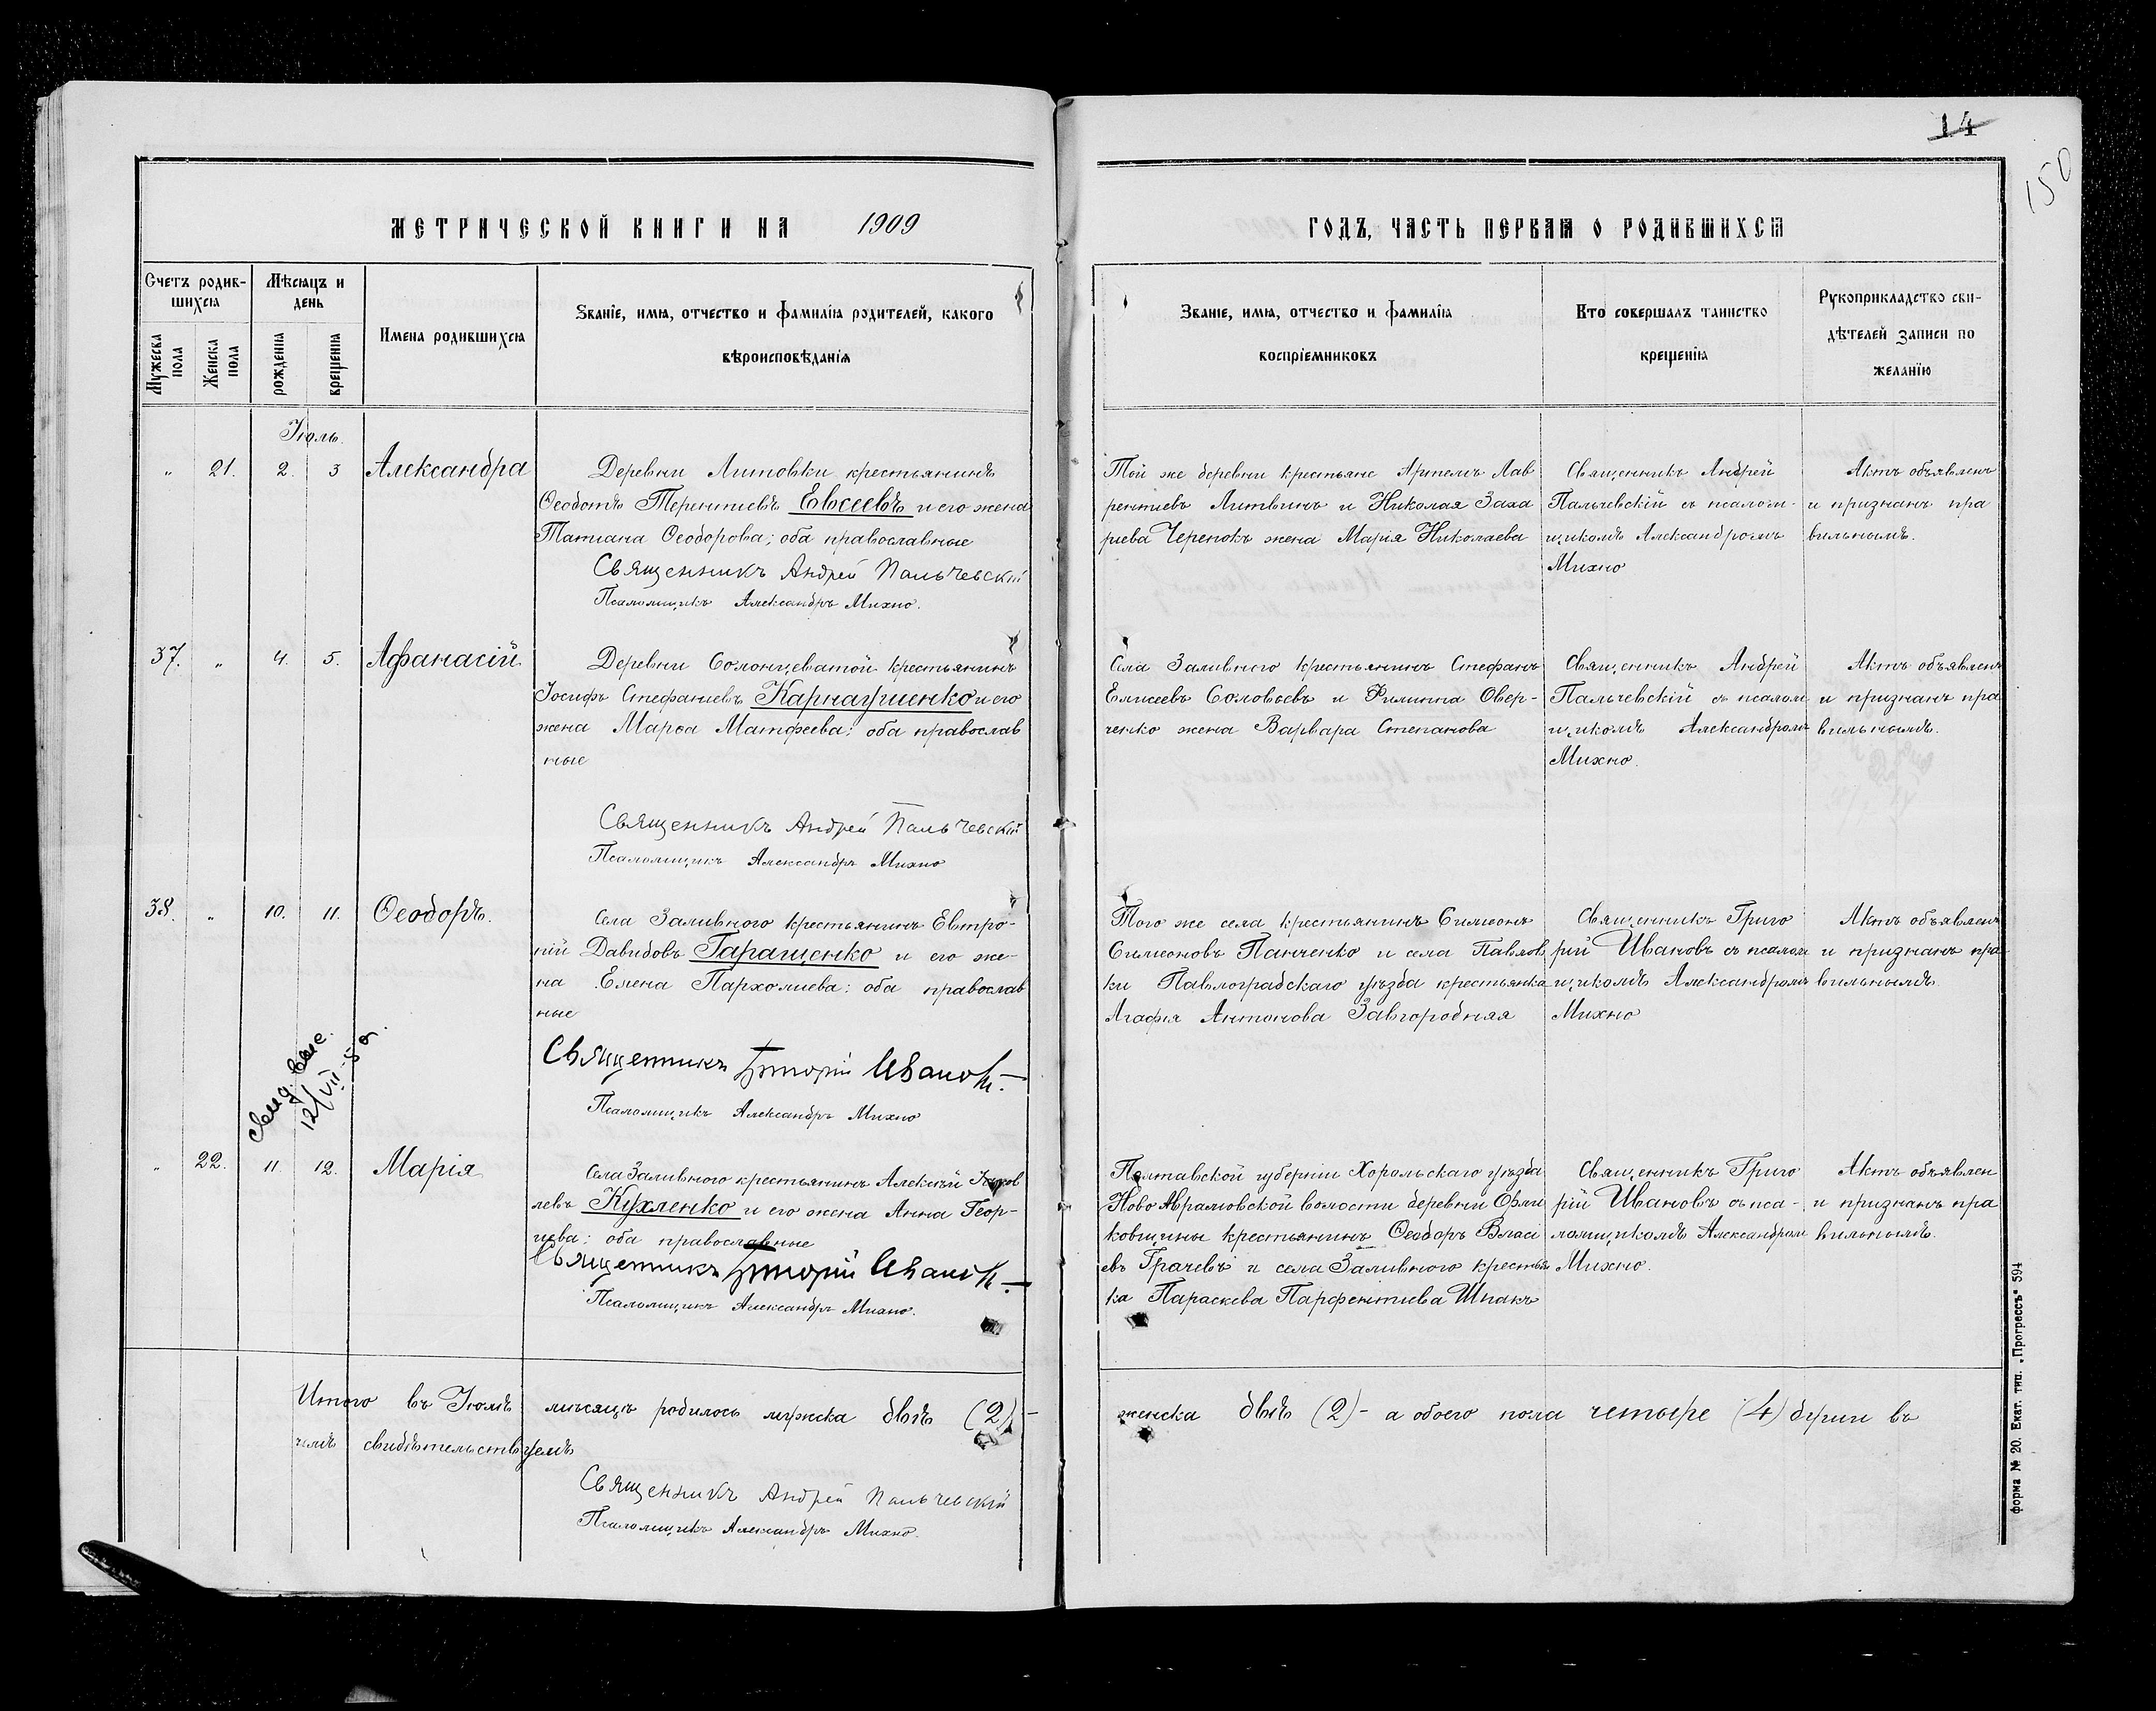 14
150
МЕТРИЧЕСКОЙ КНИГИ НА 1909
ГОДЪ, ЧАСТЬ ПЕРВАЯ О РОДИВШИХСЯ
Счетъ родив-
шихся
Мужеска пола
Женска пола
Мѣсяцъ и
день
рожденія
крещенія
Имена родившихся
Званіе, имя, отчество и фамилія родителей, какого
вѣроисповѣданія
Званіе, имя, отчество и фамилія
воспріемниковъ
Кто совершалъ таинство
крещенія
Рукоприкладство сви-
дѣтелей записи по
желанію
Іюль.
" 21. 2. 3 Александра
Деревни Литовки крестьянинъ
Ѳеодотъ Терентіевъ Евсеевъ и его жена
Татіана Ѳеодорова; оба православные
Священникъ Андрей Пальчевскій
Псаломщикъ Александръ Михно.
Той же деревни крестьяне Артемъ Лав
рентіевъ Литвинъ и Николая Заха
ріева Черепокъ жена Марія Николаева
Священникъ Андрей
Пальчевскій съ псалом-
щикомъ Александромъ
Михно
Актъ объявленъ
и признанъ пра
вильнымъ.
37. " 4. 5. Афанасій
Деревни Солонцеватой крестьянинъ
Іосифъ Стефаніевъ Карнаушенко и его
жена Марѳа Матфеева; оба православ
ные
Священникъ Андрей Пальчевскій
Псаломщикъ Александръ Михно
Села Заливного крестьянинъ Стефанъ
Елисеевъ Соловьевъ и Филиппа Овер-
ченко жена Варвара Степанова
Священникъ Андрей
Пальчевскій съ псалом
щикомъ Александромъ
Михно.
Актъ объявленъ
и признанъ пра
вильнымъ.
38. " 10. 11. Ѳеодоръ.
Села Заливного крестьянинъ Евтро-
пій Давидовъ Гаращенко и его же-
на Елена Пархоміева; оба православ
ные
Священникъ Григорій Ивановъ.
Псаломщикъ Александръ Михно
Того же села крестьянинъ Симеонъ
Симеоновъ Панченко и села Павлов
ки Павлоградскаго уѣзда крестьянка
Агафія Антонова Завгородняя
Священникъ Григо
рій Ивановъ съ псалом
щикомъ Александромъ
Михно
Актъ объявленъ
и признанъ пра-
вильнымъ.
свид. выс.
12/VII-5
" 22. 11. 12. Марія
Села Заливного крестьянинъ Алексѣй Іаков
левъ Кухленко и его жена Анна Геор-
гіева; оба православные
Священникъ Григорій Ивановъ.
Псаломщикъ Александръ Михно.
Полтавской губерніи Хорольскаго уѣзда
Ново Аврамовской волости деревни
ковщины крестьянинъ Ѳеодоръ Власі
евъ Грачевъ и села Заливного крестьян
ка Параскева Парфентіева Шпакъ
Священникъ Григо
рій Ивановъ съ пса-
ломщикомъ Александром
Михно.
Актъ объявлен
и признанъ пра
вильнымъ.
Итого въ Іюлѣ мѣсяцѣ родилось мужска двѣ (2)-
женска двѣ (2)- а обоего пола четыре (4) души въ
чемъ свидѣтельствуемъ
Священникъ Андрей Пальчевскій
Псаломщикъ Александръ Михно.
форма № 20. Екат. тип. „Прогрессъ" 594